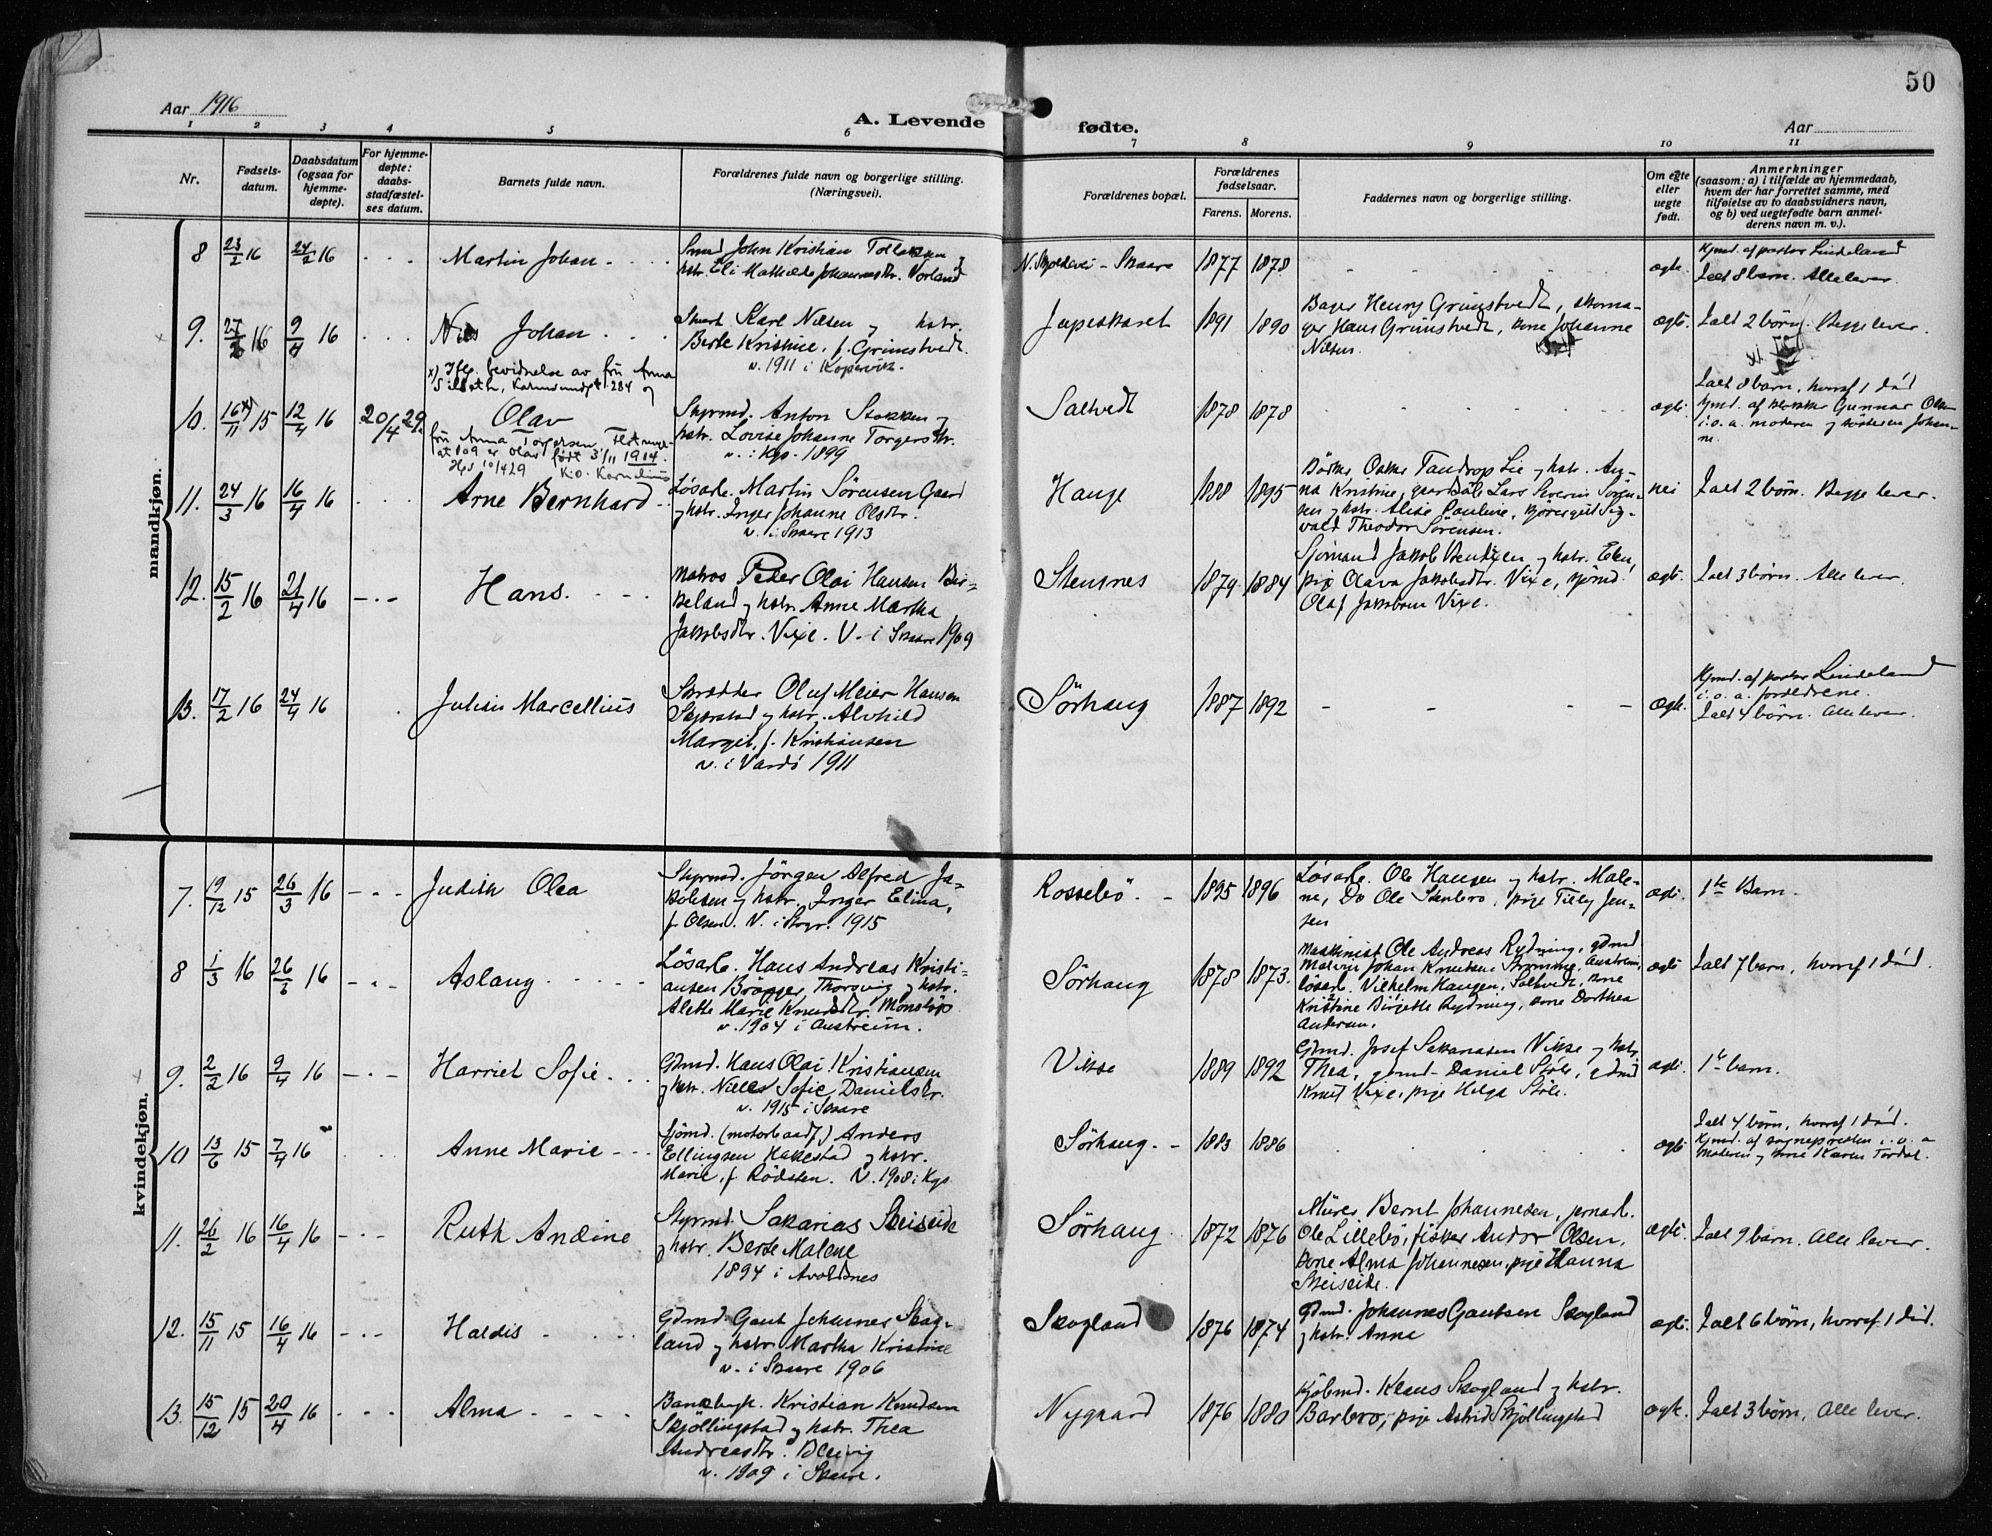 50
Aar 1916
A. Levende fødte.
Aar
1 2 3 4 5 6 7 8 9 10 11
Nr.
Fødsels-
datum.
Daabsdatum
(ogsaa for
hjemme-
døpte).
For hjemme-
døpte:
daabs-
stadfæstel-
ses datum.
Barnets fulde navn.
Forældrenes fulde navn og borgerlige stilling.
(Næringsvei).
Forældrenes bopæl.
Forældrenes
fødselsaar.
Farens. Morens.
Faddernes navn og borgerlige stilling.
Om egte
eller
uegte
født.
Anmerkninger
(saasom: a) i tilfælde av hjemmedaab,
hvem der har forrettet samme, med
tilføielse av to daabsvidners navn,
og b) ved uegtefødte barn anmel-
derens navn m. v.).
mandkjøn.
8 23/2 16 24/2 16 Martin Johan
Smed John Kristian
hstr. Eli Mathilde Johannesdtr. Vorland
Skaare 1877 1878 ægte
Hjmd. af pastor Lindeland
Ialt 8 barn. Alle lever.
9. 27/2 16 9/4 16 Nils Johan
Karl Nilsen og hstr.
Berte Kristine, f. Grimstvedt.
v. 1911 i Kopervik.
Japeskaret 1891 1890
Bager Henry Grimstvedt, skoma-
ger Hans Grimstvedt, kone Johanne
Nilsen.
ægte. Ialt 2 børn. Begge lever.
x) Iflg. bevidnelse av fru Anna
10. 16x)/11 15 12/4 16 20/4 29. Olav
fru Anna Torgersen
at 809 er Olav født 3/11 1904.
Hgs 10/4 29
Styrmd. Anton Stokken og
hstr. Lovise Johanne Torgersdtr.
v. i Hgs. 1899
Saltvedt 1878 1878 ægte
Ialt 8 barn, hvoraf 1 død
Hjmd. af Gunnar Olsen
i.o.a. moderen og søsteren Johan-
ne.
11. 24/3 16 16/4 16 Arne Bernhard
Løsarb. Martin Sörensen Gaard
og hstr. Inger Johanne Olsdtr.
v. i Skaare 1913
Hauge 1888 1895
Oskar Tandrop Lie og hstr. An-
na Kristine, Lars Severin Sören-
sen og hstr. Alise Pauline, Sig-
vald Theodor Sörensen.
nei Ialt 2 børn. Begge lever.
12. 15/2 16 21/4 16 Hans.
Matros Peder Olai Hansen Bir-
keland og hstr. Anne Martha
Jakobsdtr. Vixe. V. i Skaare 1909
Stensnes 1879 1884
Sjömand Jakob og hstr. Elen,
pige Olava Jakobsdtr. Vixe,
Olaf Jakobsen Vixe.
ægte. Ialt 3 børn. Alle lever.
13. 17/2 16 24/4 16 Julian Marcellius
Skrædder Oluf Meier Hansen
og hstr. Alvhild
Margit, f. Kristiansen
v. i Vardö 1911
Sörhaug 1887 1892 ægte.
Hjmd. af pastor Lindeland
i.o.a. forældrene.
Ialt 4 børn. Alle lever.
kvindekjøn.
7. 19/12 15 26/3 16 Judith Olea
Styrmd. Jörgen Alfred Ja-
kobsen og hstr. Inger Elina,
f. Olsen. V. i 1915
Rossebö 1895 1896
Løsarb. Ole Hansen og hstr. Male-
ne, Do Ole Stenbro, pige Tilly Jen-
sen
ægte. 1ste Barn.
8 1/3 16 26/3 16 Aslaug
Løsarb. Hans Andreas Kristi-
ansen Brager, Thorsvig og hstr.
Alette Marie Knudsdtr.
v. 1904 i Austreim.
Sörhaug 1878 1873.
Maskinist Ole Andreas Rydning, gdmd.
Johan Knutsen Austreim,
løsarb. Vilhelm Haugen, Saltvedt, kone
Kristine Birgitte Rydning, kone Dorthea
Andersen.
ægte Ialt 7 barn, hvoraf 1 død.
9. 2/2 16 9/4 16 Harriet Sofie
Gdmd. Hans Olai Kristiansen
og hstr. Sofie Danielsdtr.
v. 1915 i Skaare
Vikse 1889 1892
Gdmd. Josef Sakariasen Vikse og hstr.
Thea, gdmd. Daniel Støle, gdmd
Knut Vixe, pige Helga Støle.
ægte. 1te barn.
10 13/6 15 7/4 16 Anne Marie
Sjømd. (motorbaadf.) Anders
Ellingsen Kallestad og hstr.
Marie, f. Rödsten. V. 1908 i Hgs.
Sörhaug. 1883 1886 ægte
Ialt 4 børn, hvoraf 1 død.
Hjmd. af sognepresten i.o.a
moderen og kone Karen Tordal.
11. 26/2 16 16/4 16 Ruth Andine
Styrmd. Sakarias Steiseide
og hstr. Berte Malene
1894 i Avaldsnes
Sörhaug 1872 1876
Mürer Bernt Johannesen, jernarb.
Ole Lillebö, fisker Andor Olsen,
kone Alma Johannesen, pige Hanna
Steiseide.
ægte. Ialt 9 barn. Alle lever.
12. 15/11 15 16/4 16 Haldis
Gdmd. Gaut Johannes Skog-
land og hstr. Martha Kristine
v. i Skaare 1906
Skogland 1876 1874
Gdmd. Johannes Gautsen Skogland
og hstr. Anne
ægte. Ialt 6 børn, hvoraf 1 død.
13. 15/12 15 20/4 16 Alma
Kristian Knudsen
Skjöllingstad og hstr. Thea
Andreasdtr. Bleivig
v. 1909 i Skaare.
Nygaard 1876 1880
Kjöbmd. Klaus Skogland og hstr.
Barbro, pige Astrid Skjöllingstad
ægte. Ialt 3 børn, Alle lever.